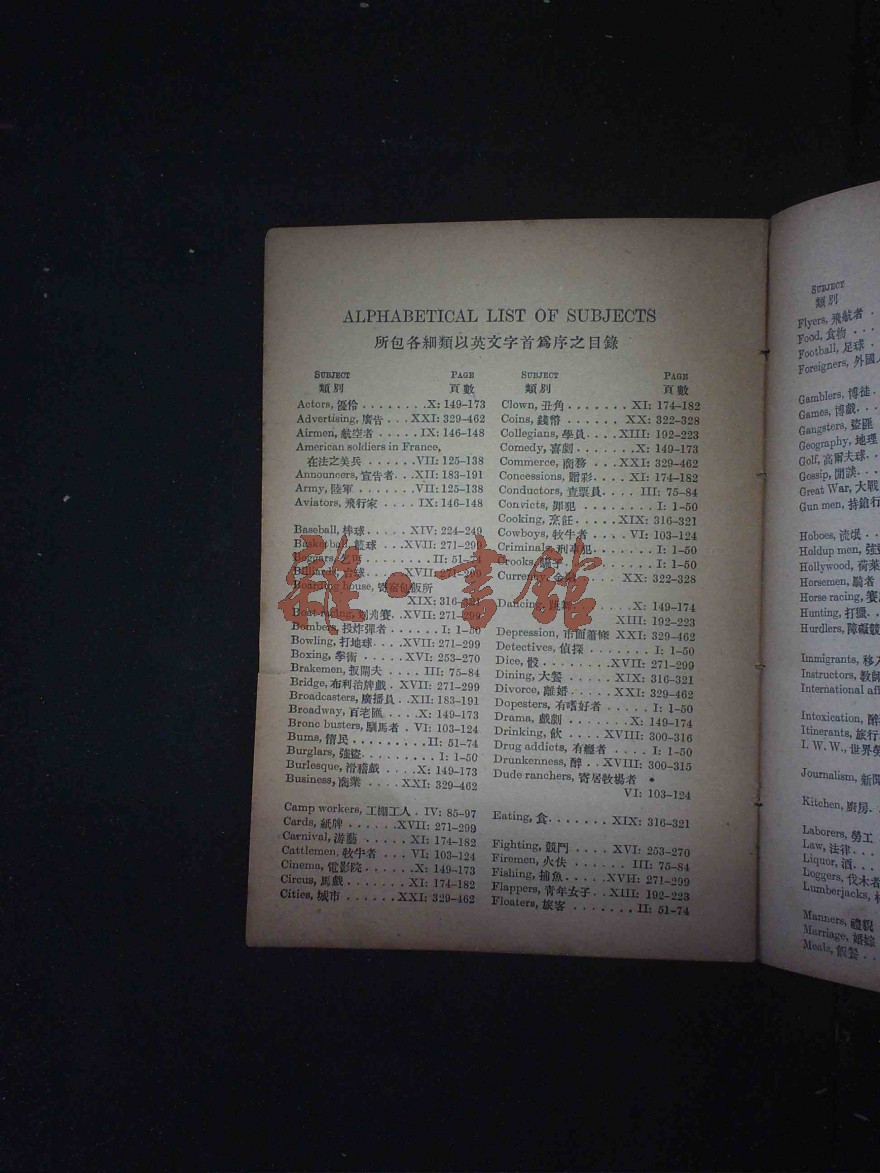 ALPHABETICAL LIST OF SUBJECTS
所包各細類以英文字首爲序之目錄
SUBJECT PAGE
類別 頁數
Actors, 優伶 . . . . . . . . X: 149–173
Advertising, 廣告 . . . XXI: 329–462
Airmen, 航空者 . . . . . IX: 146–148
American soldiers in France,
在法之美兵 . . . . . . VII: 125–138
Announcers, 宣告者. . . XII: 183–191
Army, 陸軍 . . . . . . . VII: 125–138
Aviators, 飛行家 . . . . IX: 146–148
Baseball, 棒球. . . . . XIV: 224–249
Basketball, 籃球 . . . XVII: 271–299
Beggars, 乞丐 . . . . . . . II: 51–74
Billiards, 台球. . . . XVII: 271–299
Boarding house, 寄宿包飯所
XIX: 316–321
Boat racing, 划舟賽. . XVII: 271–299
Bombers, 投炸彈者 . . . . . I: 1–50
Bowling, 打地球. . . . XVII: 271–299
Boxing, 拳術 . . . . . XVI: 253–270
Brakemen, 扳閘夫 . . . . III: 75–84
Bridge, 布利治牌戲 . XVII: 271–299
Broadcasters, 廣播員 . . XII: 183–191
Broadway, 百老匯 . . . . X: 149–173
Bronc busters, 馴馬者 . VI: 103–124
Bums, 惰民 . . . . . . . . . II: 51–74
Burglars, 強盜. . . . . . . . I: 1–50
Burlesque, 滑稽戲 . . . . X: 149–173
Business, 商業 . . . . XXI: 329–462
Camp workers, 工棚工人 . IV: 85–97
Cards, 紙牌 . . . . . . XVII: 271–299
Carnival, 游藝 . . . . . XI: 174–182
Cattlemen, 牧牛者 . . . VI: 103–124
Cinema, 電影院. . . . . . X: 149–173
Circus, 馬戲 . . . . . . . XI: 174–182
Cities, 城市 . . . . . . XXI: 329–462
SUBJECT PAGE
類別 頁數
Clown, 丑角 . . . . . . . XI: 174–182
Coins, 錢幣 . . . . . . XX: 322–328
Collegians, 學員. . . . XIII: 192–223
Comedy, 喜劇. . . . . . . X: 149–173
Commerce, 商務 . . . XXI: 329–462
Concessions, 贈彩. . . . XI: 174–182
Conductors, 查票員. . . . III: 75–84
Convicts, 罪犯 . . . . . . . . I: 1–50
Cooking, 烹飪. . . . . . XIX: 316–321
Cowboys, 牧牛者 . . . . VI: 103–124
Criminals, 刑事犯. . . . . . I: 1–50
Crooks, 騙子. . . . . . . . . I: 1–50
Currency, 金融 . . . . XX: 322–328
Dancing, 跳舞. . . . . . X: 149–174
XIII: 192–223
Depression, 市面蕭條 XXI: 329–462
Detectives, 偵探 . . . . . . . I: 1–50
Dice, 骰 . . . . . . . XVII: 271–299
Dining, 大餐 . . . . . XIX: 316–321
Divorce, 離婚. . . . . . XXI: 329–462
Dopesters, 有嗜好者 . . . . . I: 1–50
Drama, 戲劇 . . . . . . . X: 149–174
Drinking, 飲 . . . . . XVIII: 300–316
Drug addicts, 有癮者 . . . . I: 1–50
Drunkenness, 醉 . . XVIII: 300–315
Dude ranchers, 寄居牧場者
VI: 103–124
Eating, 食. . . . . . . . XIX: 316–321
Fighting, 競鬥 . . . . . XVI: 253–270
Firemen, 火伕 . . . . . . . III: 75–84
Fishing, 捕魚. . . . . . XVII: 271–299
Flappers, 青年女子. . XIII: 192–223
Floaters, 旅客 . . . . . . . II: 51–74
SUBJECT
類別
Flyers, 飛航者
Food, 食物
Football, 足球
Foreigners, 外國人
Gamblers, 博徒
Games, 博戲
Gangsters, 盜匪
Geography, 地理
Golf, 高爾夫球
Gossip, 閒談
Great War, 大戰
Gun men, 持鎗行
Hoboes, 流氓
Holdup men, 強
Hollywood, 荷萊
Horsemen, 騎者
Horse racing, 賽
Hunting, 打獵
Hurdlers, 障礙競
Immigrants, 移入
Instructors, 教師
International aff
Intoxication, 醉
Itinerants, 旅行
I. W. W., 世界勞
Journalism, 新聞
Kitchen, 廚房
Laborers, 勞工
Law, 法律
Liquor, 酒
Loggers, 伐木者
Lumberjacks,
Manners, 禮貌
Marriage, 婚嫁
Meals, 飯餐
雜·書館